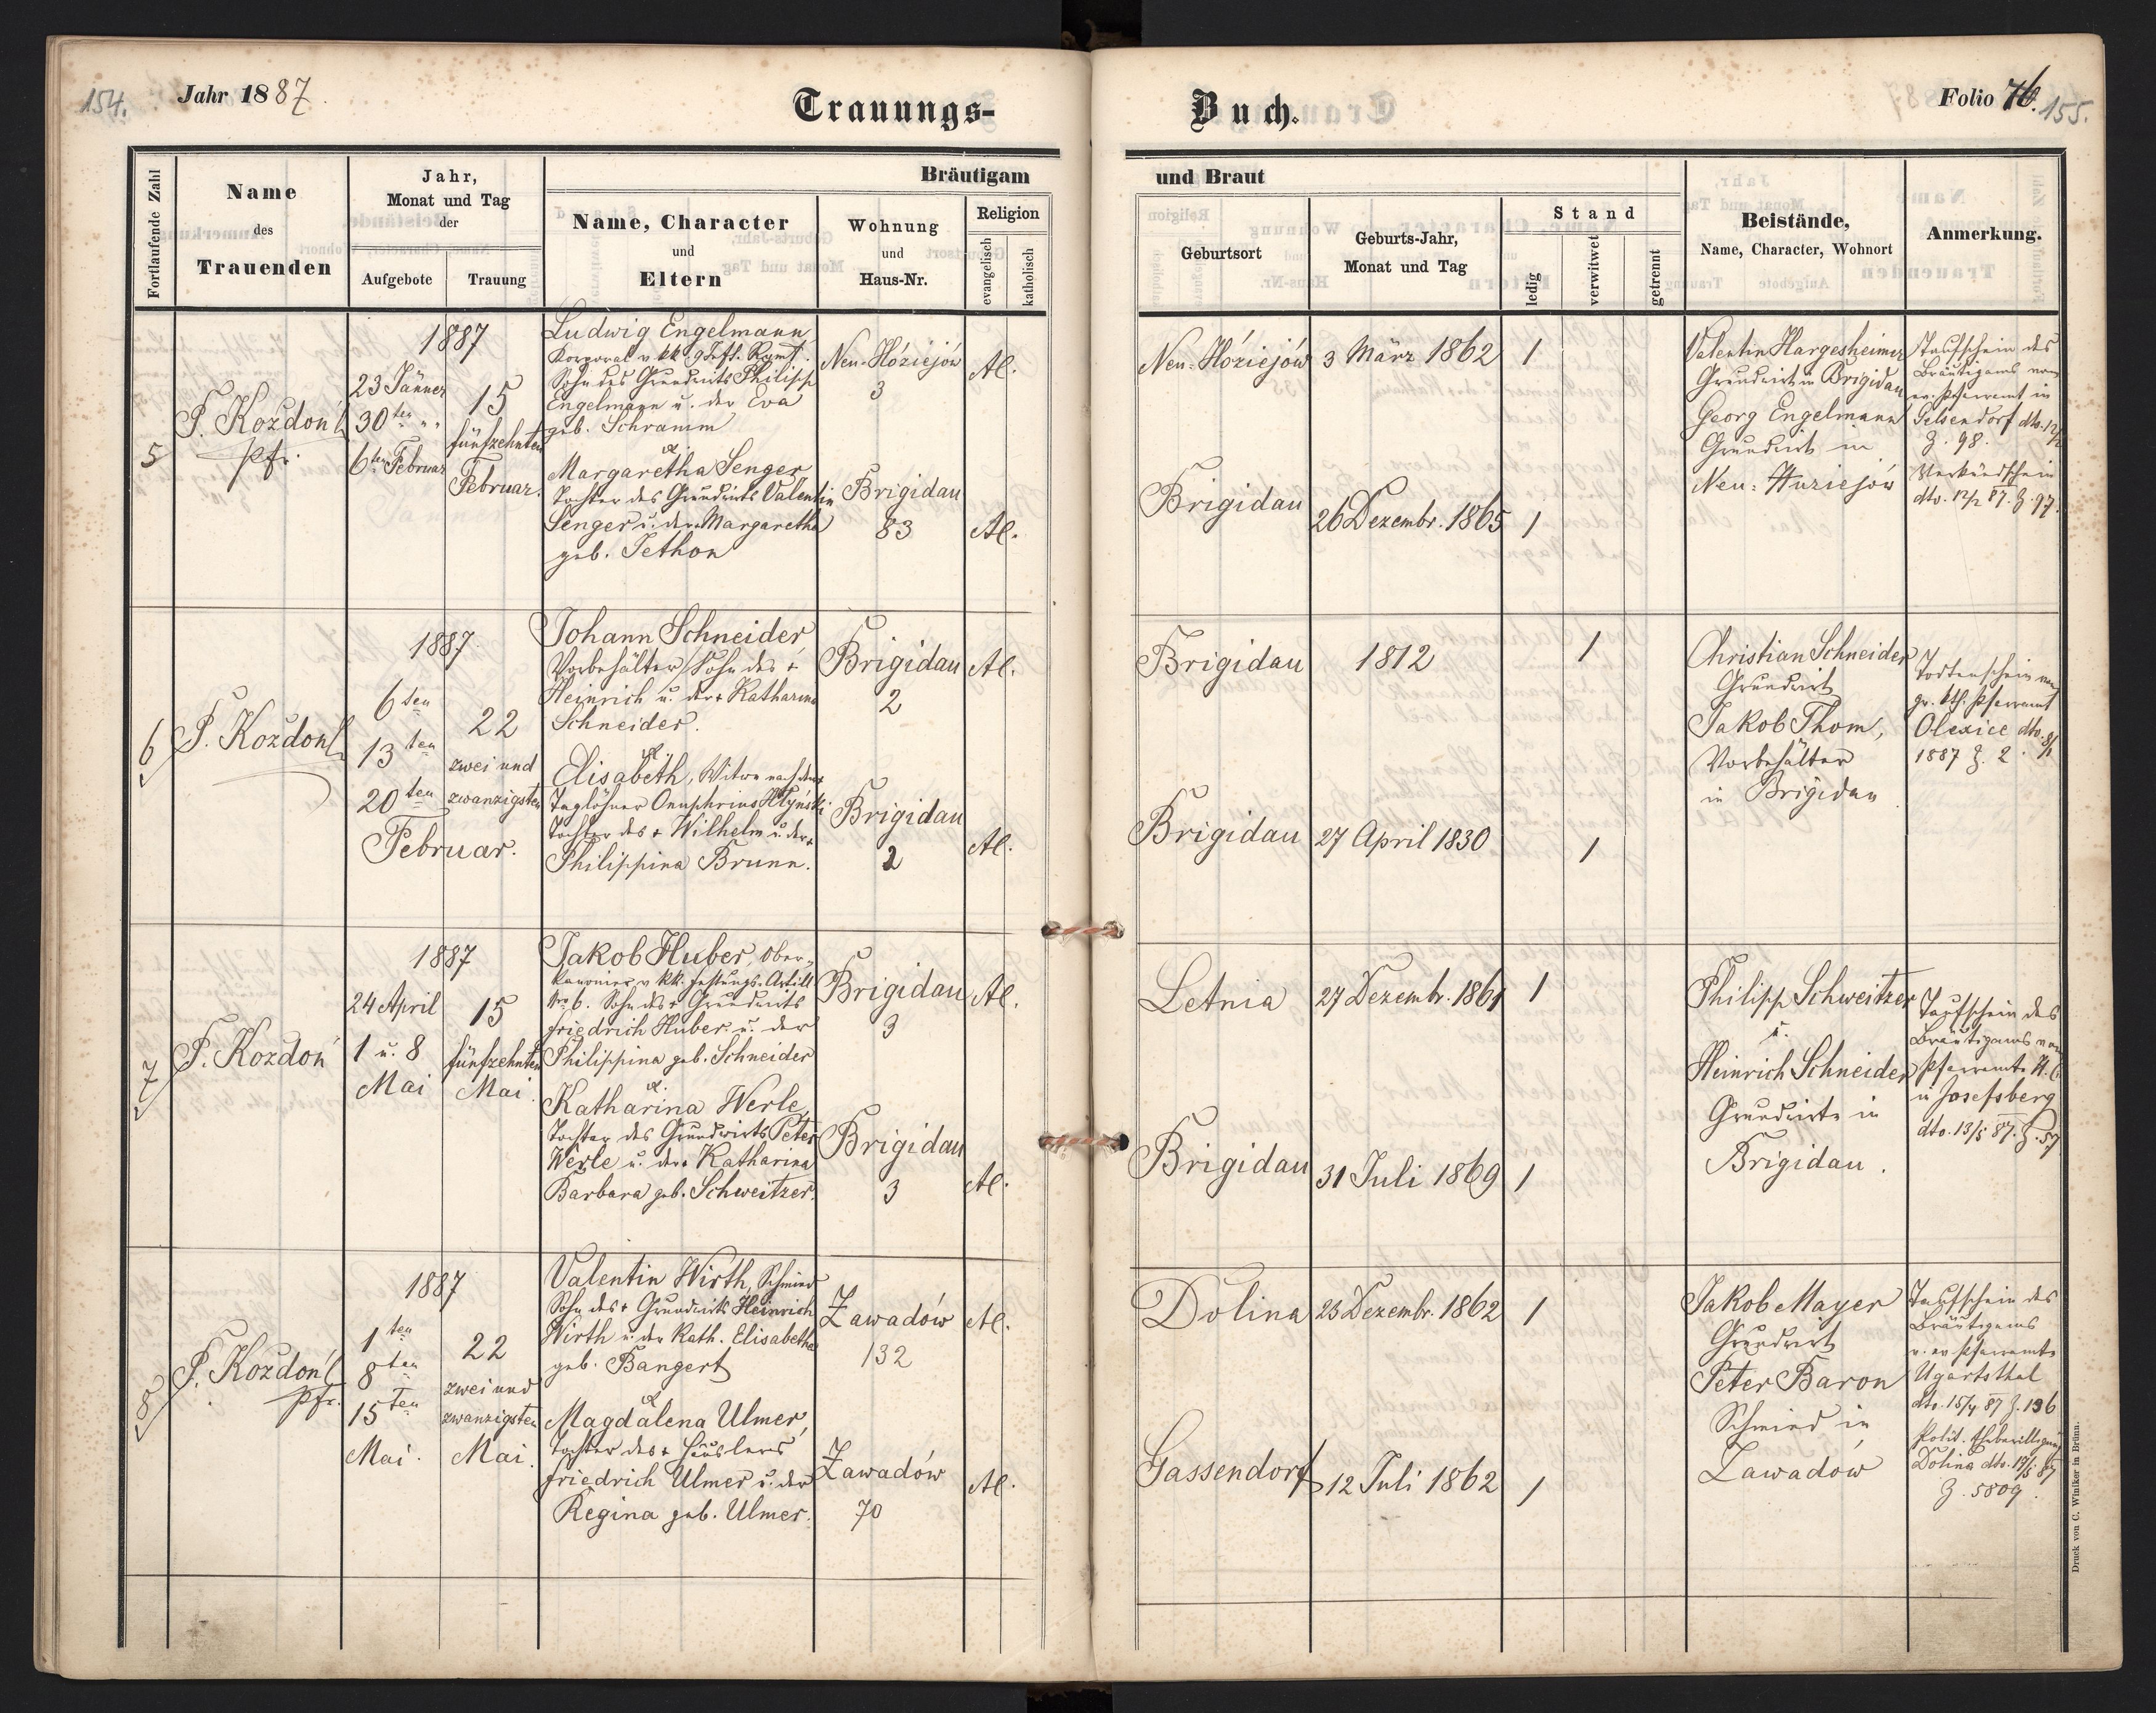 154.
Jahr 1887.
Trauungs-
Buch.
Folio 76.
155.
Fortlaufende Zahl
Name
des
Trauenden
Jahr,
Monat und Tag
der
Aufgebote
Trauung
Bräutigam
Name, Character
und
Eltern
Wohnung
und
Haus-Nr.
Religion
evangelisch
katholisch
und Braut
Geburtsort
Geburts-Jahr,
Monat und Tag
Stand
ledig
verwitwet
getrennt
Beistände,
Name, Character, Wohnort
Anmerkung.
5
J. Kozdoń
Pfr.
1887
23 Jänner
30ten " "
6ten Februar
15
fünfzehnten
Februar.
Ludwig Engelmann
Korporal v kk. 9 Rgmt.
Sohn des Grundwirts Philipp
Engelmann u. der Eva
geb. Schramm
&
Margaretha Senger
Tochter des Grundwirts Valentin
Senger u. der Margaretha
geb. Jethon
Neu-Hóziejów
3
Al.
Brigidau
83
Al.
Neu-Hóziejów
3 März 1862
1
Brigidau
26 Dezembr. 1865
1
Valentin Hargesheimer
Grundwirt in Brigidau
Georg Engelmann
Grundwirt in
Neu-Huziejów
Taufschein des
Bräutigams vom
ev. Pfarramt in
Gelsendorf dto. 12/2
Z. 98.
Verkündschein
dto. 12/2 87. Z. 97.
6
J. Kozdoń
1887
6ten
13ten
20ten
Februar.
22
zwei und
zwanzigsten
Johann Schneider
Vorbehälter Sohn des +
Heinrich u. der + Katharina
Schneider.
&
Elisabeth, Witwe nach dem +
Taglöhner Onuphrius Hłyński
Tochter des + Wilhelm u. der +
Philippina Brunn.
Brigidau
2
Al.
Brigidau
2
Al.
Brigidau
1812
1
Brigidau
27 April 1830
1
Christian Schneider
Grundwirt
Jakob Thom,
Vorbehälter
in Brigidau
Todtenschein vom
gr. kth. Pfarramt
Olexice dto. 8/1
1887 Z. 2.
7
J. Kozdoń
1887
24 April
1 u. 8
Mai
15
fünfzehnten
Mai.
Jakob Huber, Ober-
kanonier v kk. Festungs-Artill
Nro 6. Sohn des + Grundwirts
Friedrich Huber u. der
Philippina geb. Schneider
&
Katharina Werle,
Tochter des Grundwirts Peter
Werle u. der + Katharina
Barbara geb. Schweitzer.
Brigidau
3
Al.
Brigidau
3
Al.
Letnia
27 Dezembr. 1861
1
Brigidau
31 Juli 1869
1
Philipp Schweitzer
u.
Heinrich Schneider
Grundwirte in
Brigidau.
Taufschein des
Bräutigams vom
Pfarramte H. C.
in Josefsberg
dto. 13/5 87. Z. 57
8
J. Kozdoń
Pfr.
1887
1ten
8ten
15ten
Mai.
22
zwei und
zwanzigsten
Mai.
Valentin Wirth, Schmied
Sohn des + Grundwirts Heinrich
Wirth u. der Kath. Elisabetha
geb. Bangert
&
Magdalena Ulmer,
Tochter des + Häuslers
Friedrich Ulmer u. der
Regina geb. Ulmer.
Zawadów
132
Al.
Zawadów
70
Al.
Dolina
23 Dezembr. 1862
1
Gassendorf
12 Juli 1862
1
Jakob Mayer
Grundwirt
Peter Baron
Schmied in
Zawadów
Taufschein des
Bräutigams
v. ev Pfarramte
Ugartsthal
dto. 15/4 87 Z. 136
Polit. Ehebewilligung
Dolina dto. 17/5 87
Z. 5809.
Druck von C. Winiker in Brünn.